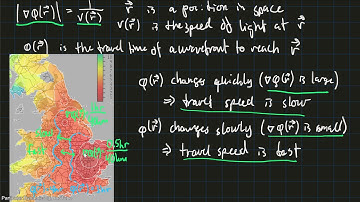 |∇φ(r⃗)| = 1/v(r⃗)   r⃗ is a position in space
v(r⃗) is the speed of light at r⃗
φ(r⃗) is the travel time of a wavefront to reach r⃗
φ(r⃗) changes quickly (∇φ(r⃗) is large)
⇒ travel speed is slow
φ(r⃗) changes slowly (∇φ(r⃗) is small)
⇒ travel speed is fast
slow
fast